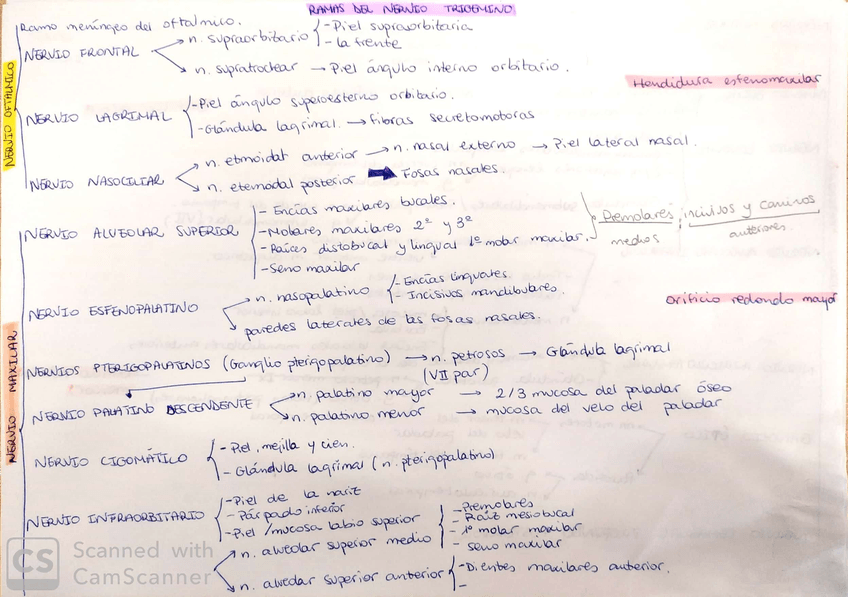 RAMAS DEL NERVIO TRIGEMINO
NERVIO OFTALMICO
Ramo meníngeo del oftalmico.
NERVIO FRONTAL → n. supraorbitario - Piel supraorbitaria
- La frente
→ n. supratroclear → Piel ángulo interno orbitario.
Hendidura esfenomaxilar
NERVIO LAGRIMAL - Piel ángulo superoesterno orbitario.
- Glándula lagrimal → fibras secretomotoras
NERVIO NASOCILIAR → n. etmoidal anterior → n. nasal externo → Piel lateral nasal.
→ n. etemodal posterior → Fosas nasales.
NERVIO MAXILAR
NERVIO ALVEOLAR SUPERIOR - Encías maxilares bucales.
- Molares maxilares 2º y 3º
- Raíces distobucal y lingual 1º molar maxilar.
- Seno maxilar
Premolares; incisivos y caninos
medios anteriores.
Orificio redondo mayor
NERVIO ESFENOPALATINO → n. nasopalatino - Encías linguales.
- Incisivos mandibulares.
→ paredes laterales de las fosas nasales.
NERVIOS PTERIGOPALATINOS (Ganglio pterigopalatino) → n. petrosos → Glándula lagrimal
(VII par)
NERVIO PALATINO DESCENDENTE → n. palatino mayor → 2/3 mucosa del paladar óseo
→ n. palatino menor → mucosa del velo del paladar
NERVIO CIGOMÁTICO - Piel, mejilla y cien.
- Glándula lagrimal (n. pterigopalatino)
NERVIO INFRAORBITARIO - Piel de la nariz
- Párpado inferior
- Piel/mucosa labio superior
→ n. alveolar superior medio - Premolares
- Raíz mesiobucal
- 1º molar maxilar
- seno maxilar
→ n. alveolar superior anterior - Dientes maxilares anterior.
-
CS Scanned with
CamScanner